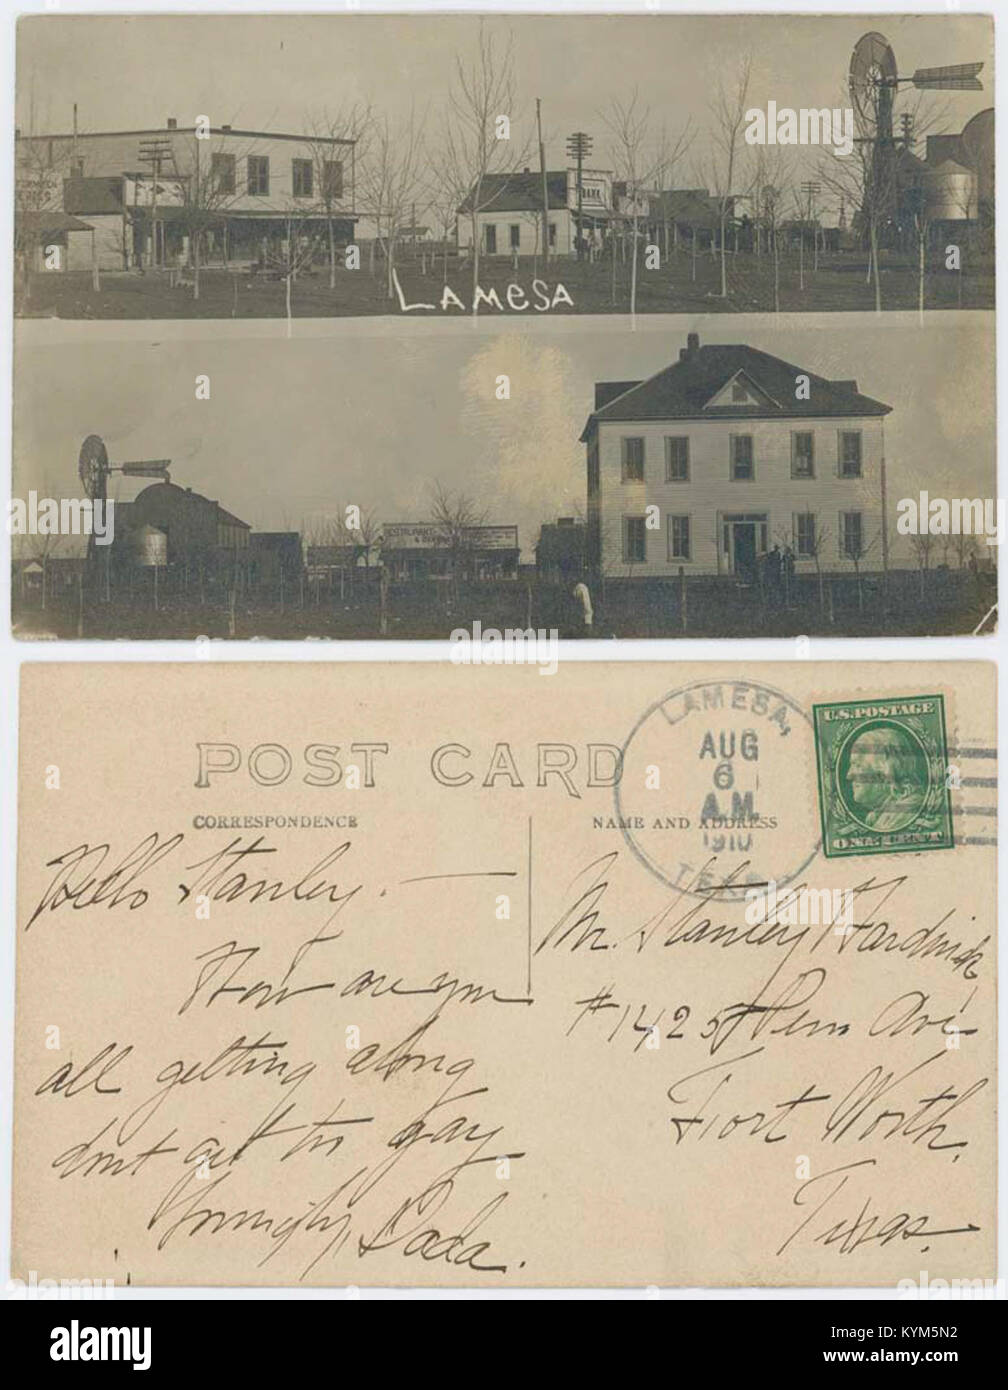 BANK
LAMESA
RESTAURANT
POST CARD
CORRESPONDENCE
NAME AND ADDRESS
LAMESA,
AUG
6
A.M.
1910
U.S. POSTAGE
ONE CENT
Hello Stanley. —
How are you
all getting along
dont get to gay
Dada.
Mr. Stanley Hardwick,
#1425 Penn Ave
Fort Worth,
Texas.
alamy
Image ID: KYM5N2
www.alamy.com